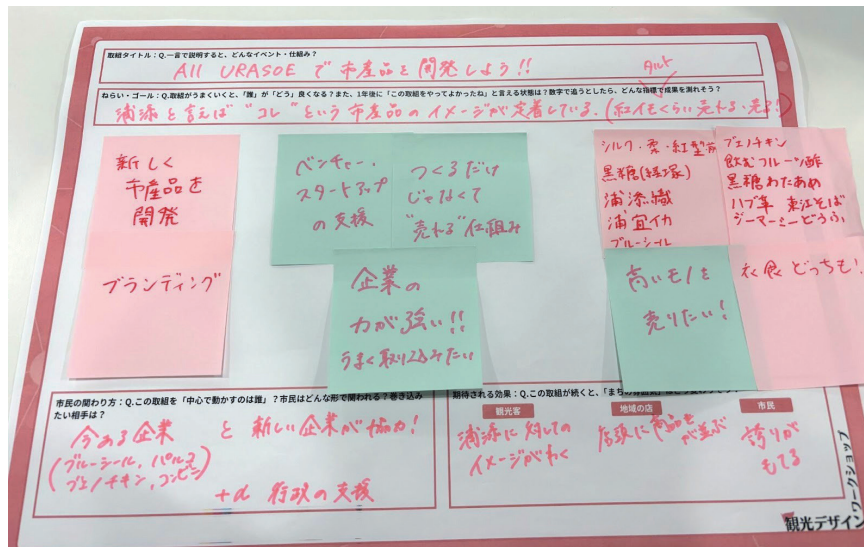 取組タイトル：Q.一言で説明すると、どんなイベント・仕組み？
All URASOE で 市産品を 開発しよう!!
ねらい・ゴール：Q.取組がうまくいくと、「誰」が「どう」良くなる？また、1年後に「この取組をやってよかったね」と言える状態は？数字で追うとしたら、どんな指標で成果を測れそう？
タルト
浦添と言えば"コレ"という市産品のイメージが定着している。(紅イモくらい売れる・売る!)
新しく
市産品を
開発
ブランディング
ベンチャー、
スタートアップ
の支援
つくるだけ
じゃなくて
"売れる"仕組み
企業の
力が強い!!
うまく取り込みたい
シルク・桑・紅型
黒糖(経塚)
浦添織
浦宜イカ
ブルーシール
ブエノチキン
飲むフルーツ酢
黒糖わたあめ
ハブ革 東江そば
ジーマーミーどうふ
高いモノを
売りたい!
衣食 どっちも!
市民の関わり方：Q.この取組を「中心で動かすのは誰」？市民はどんな形で関われる？巻き込み
たい相手は？
今ある企業 と 新しい企業が協力!
(ブルーシール、パルコ
ブエノチキン、コンビニ)
+α 行政の支援
期待される効果：Q.この取組が続くと、「まちの雰囲気」はどう変わりそう？
観光客
浦添に対しての
イメージがわく
地域の店
店頭に商品が並ぶ
市民
誇りが
もてる
観光デザイン
ワークショップ